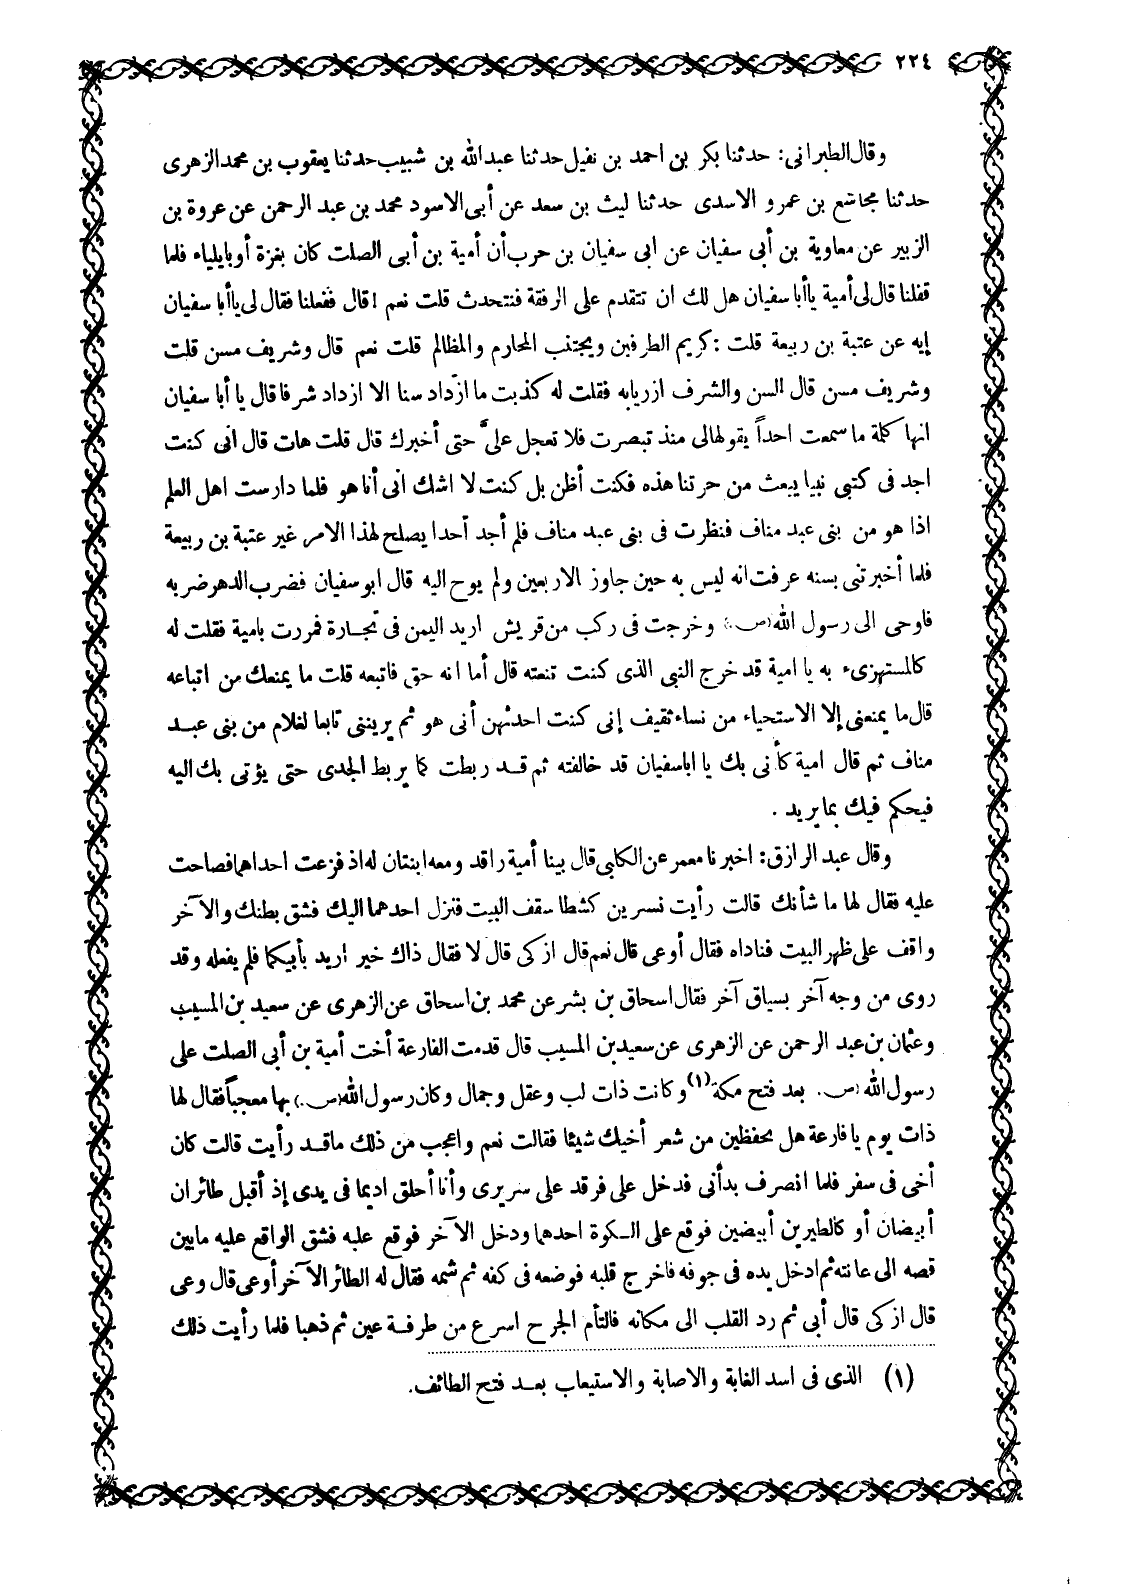 ٢٢٤
وقال الطبرانى: حدثنا بكر بن احمد بن نفيل حدثنا عبد الله بن شبيب حدثنا يعقوب بن محمد الزهرى
حدثنا مجاشع بن عمرو الاسدى حدثنا ليث بن سعد عن أبى الاسود محمد بن عبد الرحمن عن عروة بن
الزبير عن معاوية بن أبى سفيان عن ابى سفيان بن حرب أن أمية بن أبى الصلت كان بغزة أو بايلياء فلما
قفلنا قال لى أمية يا أبا سفيان هل لك ان تتقدم على الرفقة فنتحدث قلت نعم ! قال ففعلنا فقال لى يا أبا سفيان
إيه عن عتبة بن ربيعة قلت : كريم الطرفين ويجتنب المحارم والمظالم قلت نعم قال وشريف مسن قلت
وشريف مسن قال السن والشرف ازريابه فقلت له كذبت ما ازداد سنا الا ازداد شرفا قال يا أبا سفيان
انها كلمة ما سمعت احداً يقولها لى منذ تبصرت فلا تعجل علىَّ حتى أخبرك قال قلت هات قال انى كنت
اجد فى كتبى نبيا يبعث من حرتنا هذه فكنت أظن بل كنت لا اشك انى أنا هو فلما دارست اهل العلم
اذا هو من بنى عبد مناف فنظرت فى بنى عبد مناف فلم أجد أحدا يصلح لهذا الامر غير عتبة بن ربيعة
فلما أخبرتنى بسنه عرفت انه ليس به حين جاوز الاربعين ولم يوح اليه قال ابو سفيان فضرب الدهر ضربه
فاوحى الى رسول الله (ص.) وخرجت فى ركب من قريش اريد اليمن فى تجارة فمررت بامية فقلت له
كالمستهزىء به يا امية قد خرج النبى الذى كنت تنعته قال أما انه حق فاتبعه قلت ما يمنعك من اتباعه
قال ما يمنعنى إلا الاستحياء من نساء ثقيف إنى كنت احدثهن أنى هو ثم يريننى تابعا لغلام من بنى عبد
مناف ثم قال امية كأنى بك يا ابا سفيان قد خالفته ثم قد ربطت كما يربط الجدى حتى يؤتى بك اليه
فيحكم فيك بما يريد .
وقال عبد الرازق: اخبرنا معمر عن الكلبى قال بينا أمية راقد ومعه ابنتان له اذ فزعت احداهما فصاحت
عليه فقال لها ما شأنك قالت رأيت نسرين كشطا سقف البيت فنزل احدهما اليك فشق بطنك والآخر
واقف على ظهر البيت فناداه فقال أوعى قال نعم قال ازكى قال لا فقال ذاك خير اريد بأبيكما فلم يفعله وقد
روى من وجه آخر بسياق آخر فقال اسحاق بن بشر عن محمد بن اسحاق عن الزهرى عن سعيد بن المسيب
وعثمان بن عبد الرحمن عن الزهرى عن سعيد بن المسيب قال قدمت الفارعة أخت أمية بن أبى الصلت على
رسول الله (ص. بعد فتح مكة (١) وكانت ذات لب وعقل وجمال وكان رسول الله (ص.) بها معجباً فقال لها
ذات يوم يا فارعة هل تحفظين من شعر أخيك شيئا فقالت نعم واعجب من ذلك ما قد رأيت قالت كان
أخى فى سفر فلما انصرف بدأنى فدخل على فرقد على سريرى وأنا أحلق اديما فى يدى إذ أقبل طائران
أبيضان أو كالطيرين أبيضين فوقع على الكوة احدهما ودخل الآخر فوقع عليه فشق الواقع عليه ما بين
قصه الى عانته ثم ادخل يده فى جوفه فاخرج قلبه فوضعه فى كفه ثم شمه فقال له الطائر الآخر أوعى قال وعى
قال ازكى قال أبى ثم رد القلب الى مكانه فالتأم الجرح اسرع من طرفة عين ثم ذهبا فلما رأيت ذلك
(١) الذى فى اسد الغابة والاصابة والاستيعاب بعد فتح الطائف.